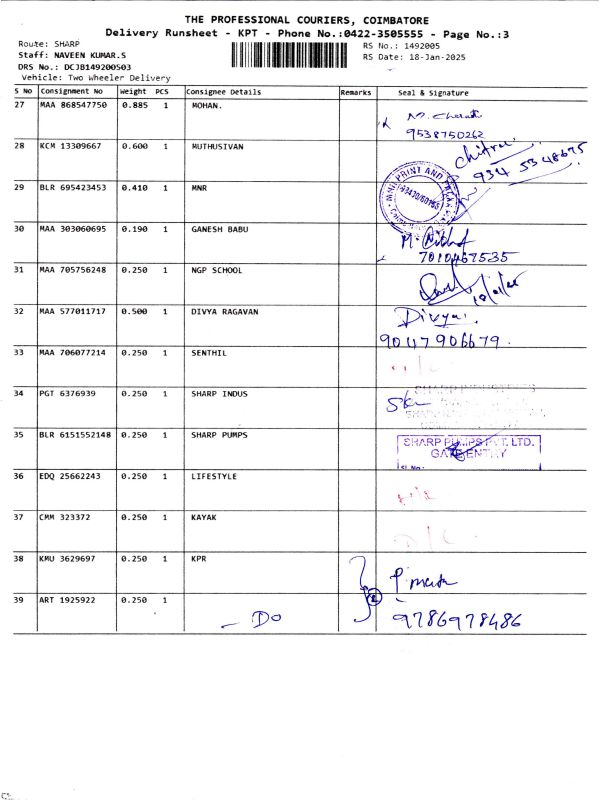 THE PROFESSIONAL COURIERS, COIMBATORE
Delivery Runsheet - KPT - Phone No.:0422-3505555 - Page No.:3
Route: SHARP
RS No.: 1492005
Staff: NAVEEN KUMAR.S
RS Date: 18-Jan-2025
DRS No.: DCJB149200503
Vehicle: Two Wheeler Delivery
S NO Consignment No Weight PCS Consignee Details Remarks Seal & Signature
27 MAA 868547750 0.885 1 MOHAN.
9538750262
28 KCM 13309667 0.600 1 MUTHUSIVAN
chitra
934 5348675
29 BLR 695423453 0.410 1 MNR
PRINT AND
30 MAA 303060695 0.190 1 GANESH BABU
7010467535
31 MAA 705756248 0.250 1 NGP SCHOOL
32 MAA 577011717 0.500 1 DIVYA RAGAVAN
Divya.
9047906679.
33 MAA 706077214 0.250 1 SENTHIL
34 PGT 6376939 0.250 1 SHARP INDUS
SHARP INDUSTRIES
35 BLR 6151552148 0.250 1 SHARP PUMPS
SHARP PUMPS PVT. LTD.
GATE ENTRY
Sl.No:
36 EDQ 25662243 0.250 1 LIFESTYLE
37 CMM 323372 0.250 1 KAYAK
38 KMU 3629697 0.250 1 KPR
39 ART 1925922 0.250 1
— Do
2
9786978486